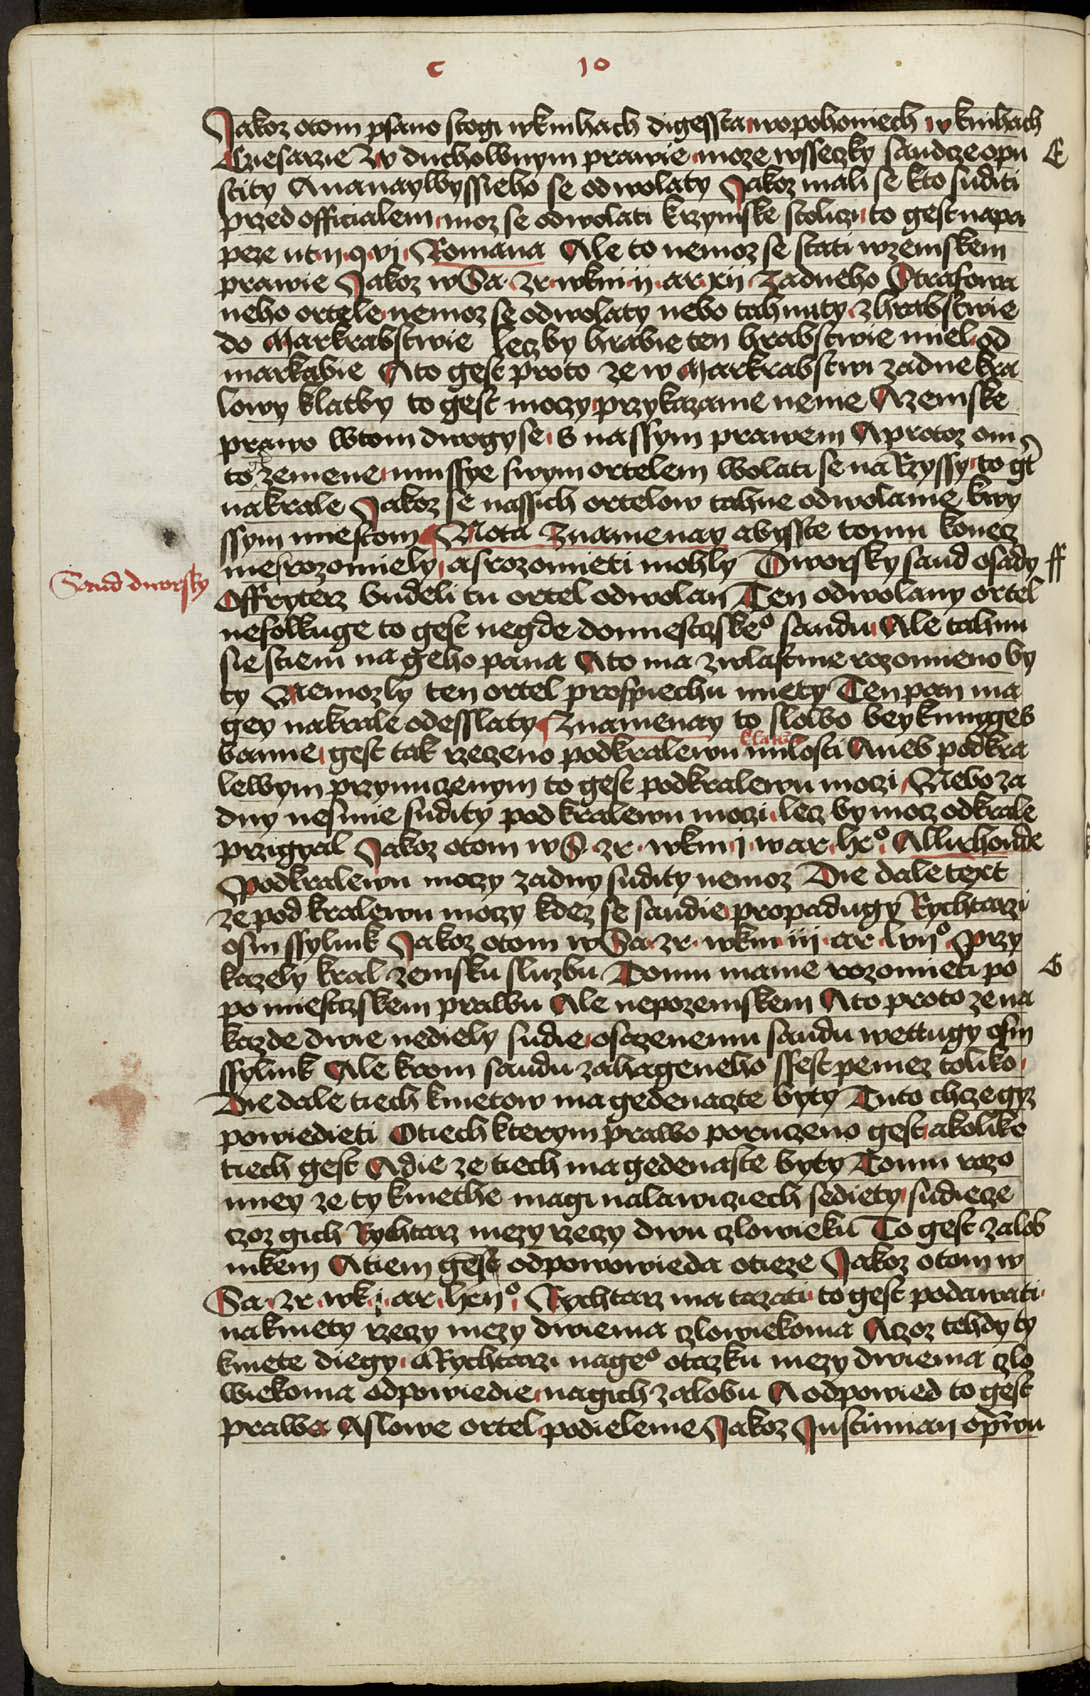 c 10
Jakoz otom psano stogi wknihach digessta wopoboniech w knihach E
Cziesarzie W duchownym prawie moze wsseczky saudcze opu
stity Ananaywyssieho se odwolaty Jakoz mali se kto suditi
przed officialem moz se odwolati krzymske stoliczi to gest napa
peze ut ij q vj Romana Ale to nemoz se stati wzemskem
prawie Jakoz w Sa zr wkni ij ar xij Zadneho Strafowa
neho ortele nemoz se odwolaty nebo tahnuty zhrabstwie
do Markrabstwie leczby hrabie ten hrabstwie miel od
markabie Ato gest proto ze w Markrabstwi zadne kra
lowy klatby to gest moczy przykazanie nenie Azemske
prawo wtom dwogy se s nassym prawem Aprotoz oni
to zemene mussye swym ortelem wolati se na Rzyssy to gt
nakrale Jakoz se nassich ortelow tahne odwolanie kwy
ssym miestom Nota Znamenay abysste tomu konecz
nie rozomiely a srozomieti mohly Dworsky saud osady ff
Saud dworsky
Offryterz budeli tu ortel odwolan Ten odwolany ortel
nesolkuge to gest negde domiestske° saudu Ale tahnu
sie stiem na geho pana Ato ma zwlastnie rozomieno by
ty Nemozly ten ortel prospiechu miety Ten pan ma
gey nakrale odesslaty Znamenay to slowo beykunyges
klatbu
banne gest tak rzeczeno podkralewu milosti Aneb podkra
lewym przynuczenym to gest podkralewu moczi Nebo za
dny nesmie sudity pod kralewu moczi lecz by mocz odkrale
przigyal Jakoz otom w S zr wkni j w ar Allerhonde
Podkralewu moczy zadny sudity nemoz Die dale text
ze pod kralewu moczy kdez se saudie propadugy Rychtarzi
osm ssylink Jakoz otom w Sa zr wkni iij ar przy
kazely kral zemsku sluzbu Tomu mame rozomieti po G
po miestskem prawu Ale nepozemskem Ato proto ze na
kazde dwie nediely sudie osazenemu saudu wettugy osm
ssylink Ale krom saudu zahageneho ssest peniez toliko
Die dale tiech kmetow ma gedenaczte byty Tuto chcze gyz
powiedieti Otiech kterym prawo poruczeno gest akolike
tiech gest Adie ze tiech ma gedenaste byty Tomu rozo
miey ze ty kmethe magi nalawiczech sediety sudiecze
czoz gich Rychtarz mezy rzeczy dwu czlowieku To gest zalob
nikem Atiem gest odpowowieda otieze Jakoz otom w
Sa zr wk ar Rychtarz ma tazati to gest podawati
nakmety rzeczy mezy dwiema czlowiekoma Aczoz tehdy ty
kmete diegy aRychtarzi nage° otazku mezy dwiema czlo
wiekoma odpowiedie nagich zalobu Aodpowied to gest
prawa Aslowe ortel podielenie Jakoz Justinian oprwu